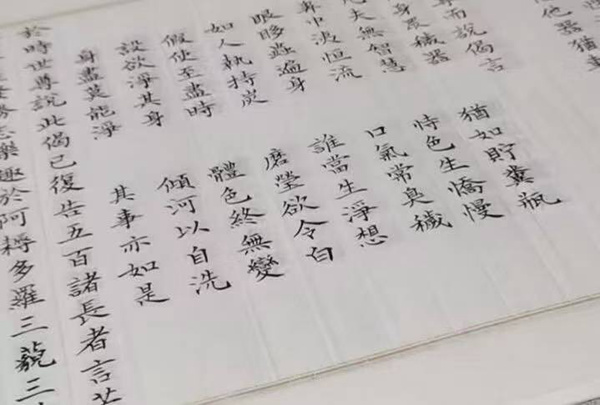 他器猶
尊而說偈言
身眾穢器
猶如貯糞瓶
凡夫無智慧
恃色生憍慢
鼻中洟恒流
口氣常臭穢
眼眵蟲遍身
誰當生淨想
如人執持炭
磨瑩欲令白
假使至盡時
體色終無變
設欲淨其身
傾河以自洗
身盡莫能淨
其事亦如是
於時世尊說此偈已復告五百諸長者言
志樂趣於阿耨多羅三藐三